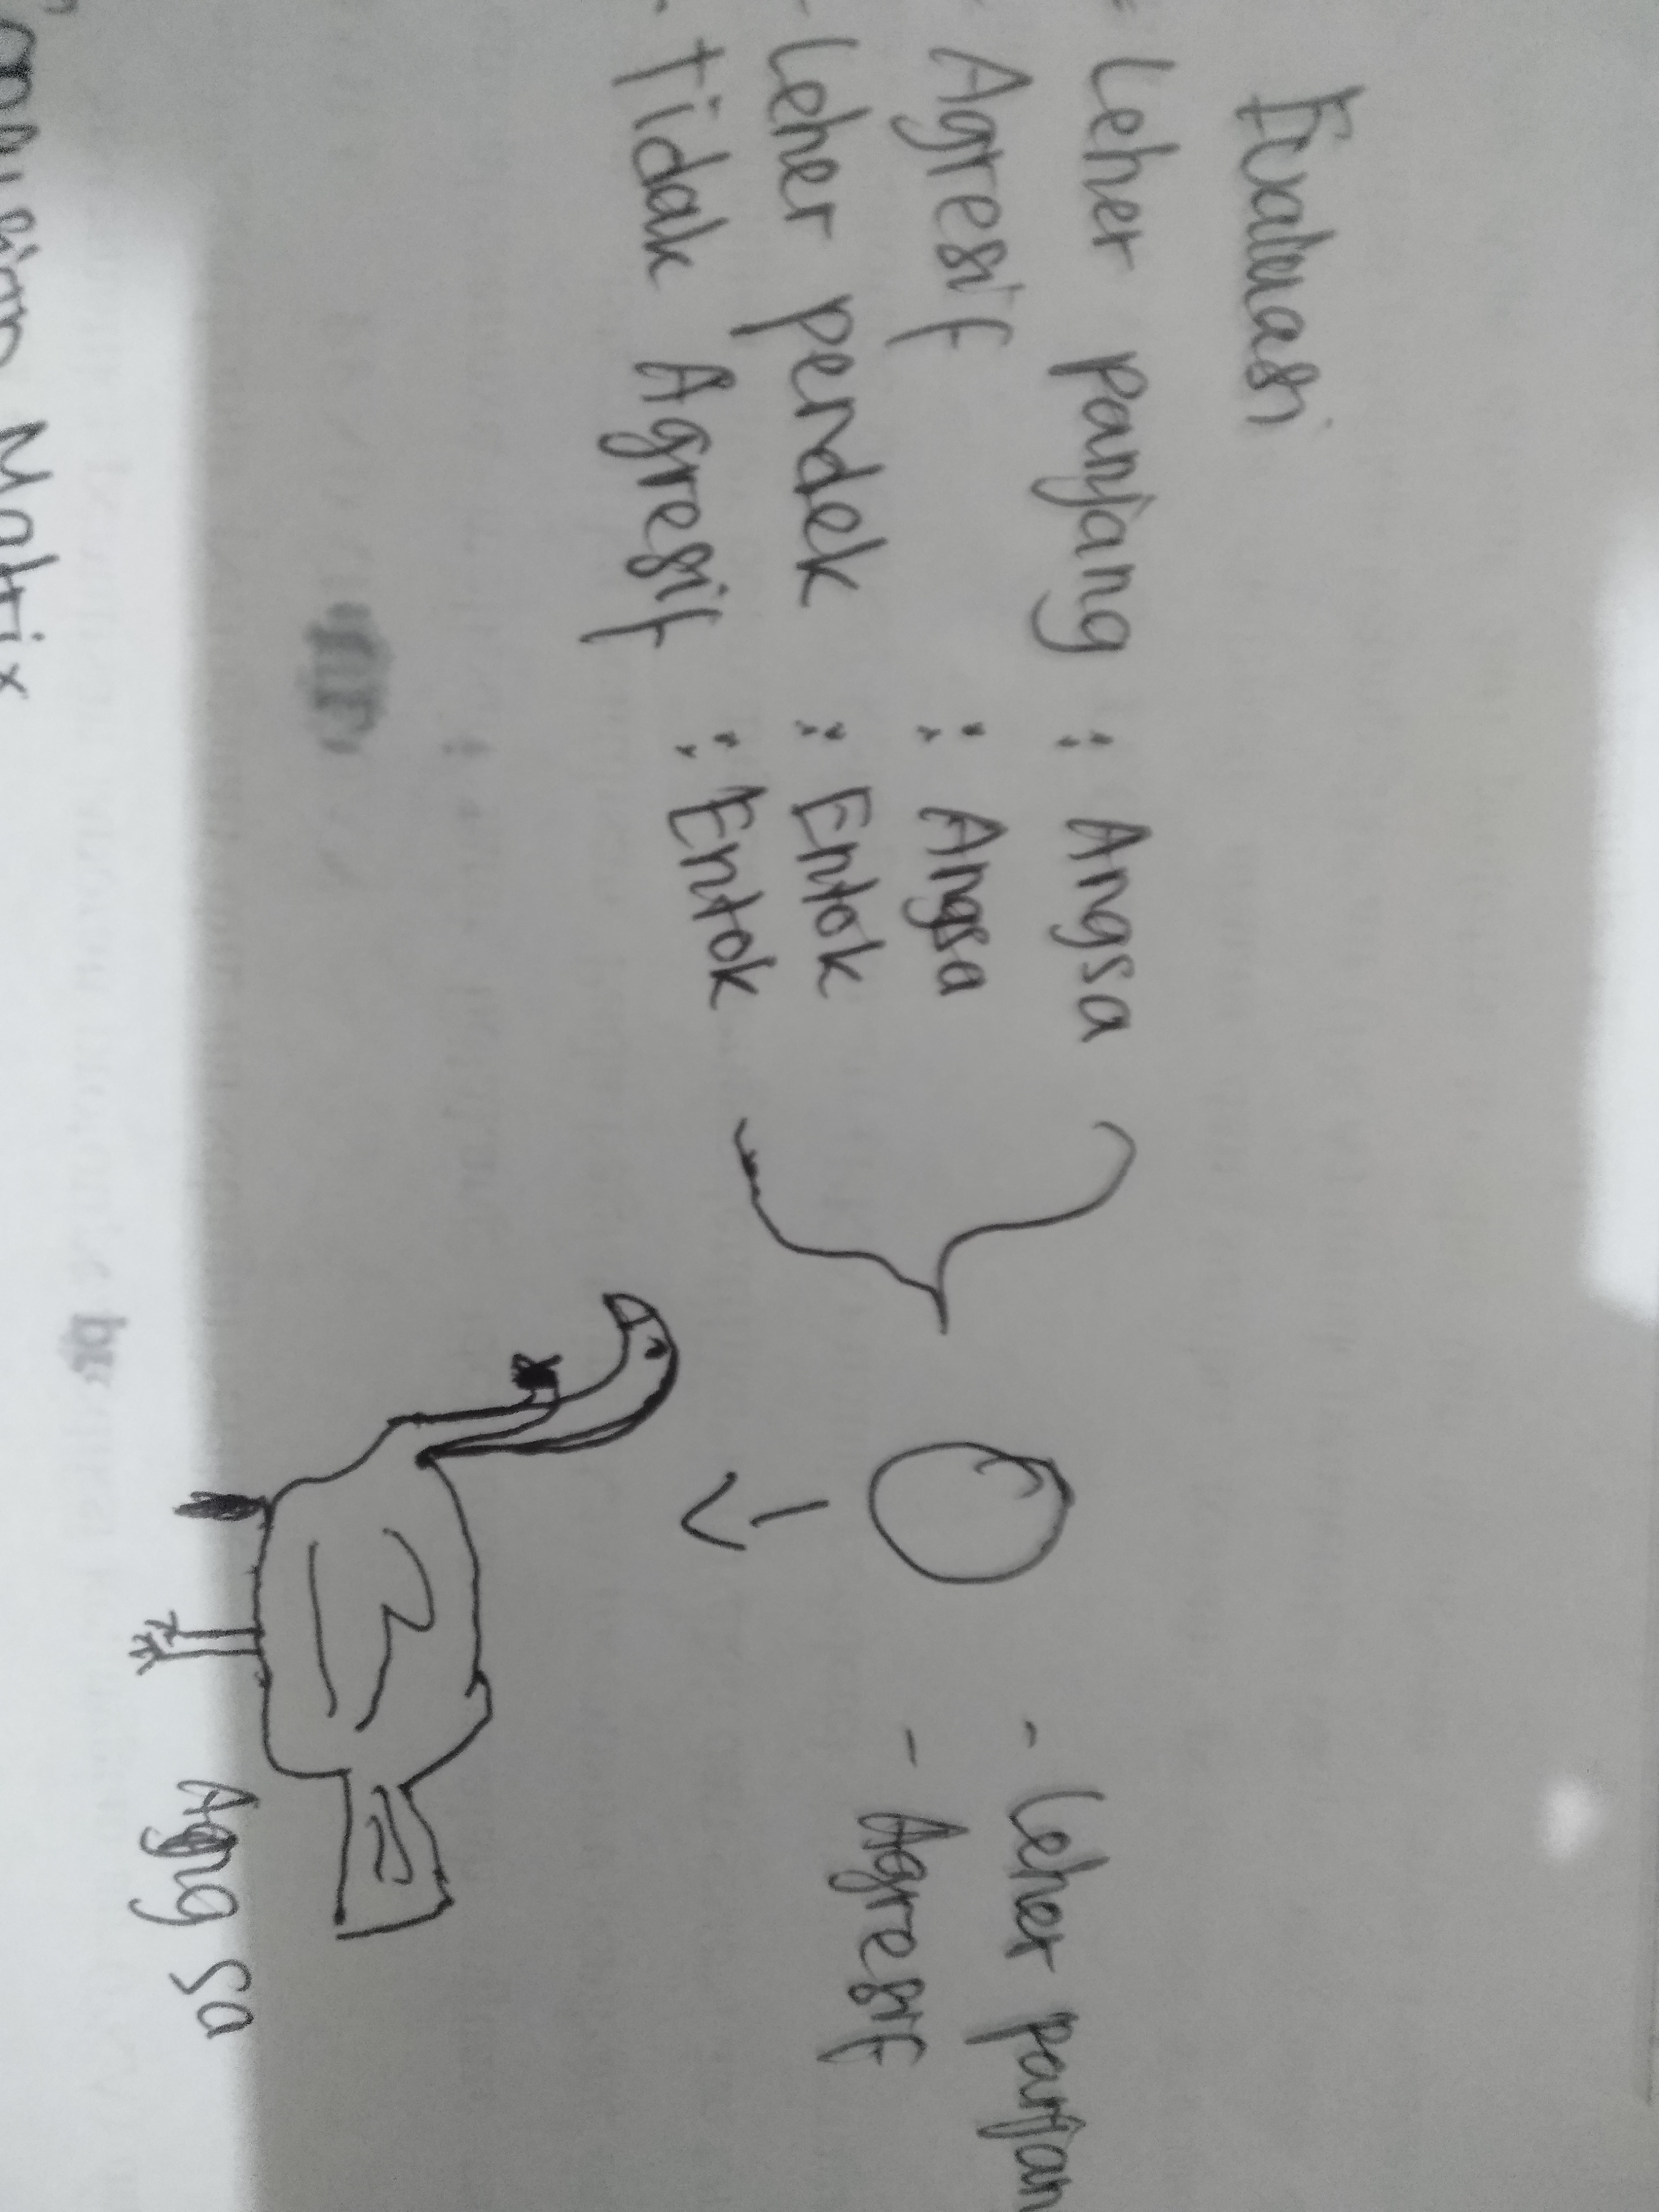 Evaluasi
- Leher panjang : Angsa
- Agresif : Angsa
- Leher pendek : Entok
- Tidak Agresif : Entok
- Leher panjan
- Agresif
Angsa
Matrix